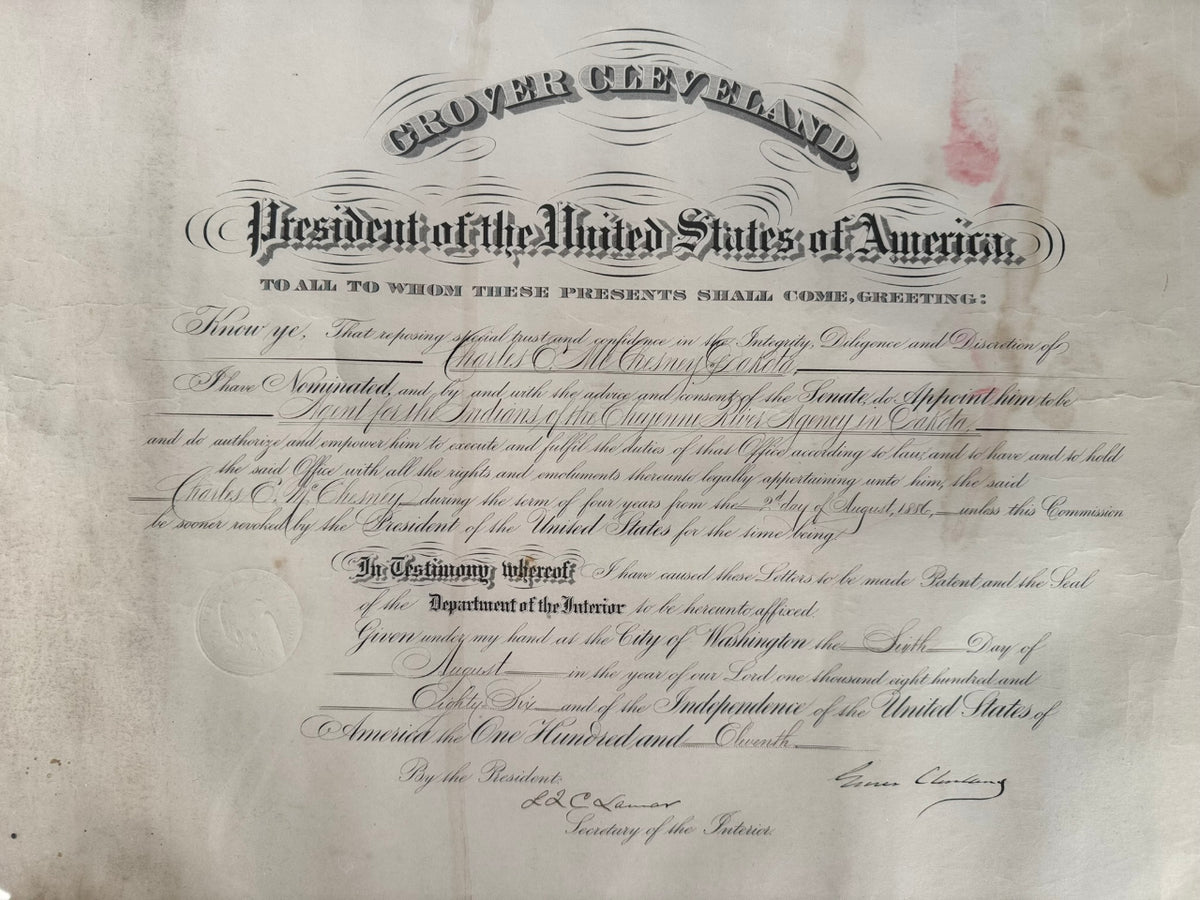 GROVER CLEVELAND,
President of the United States of America.
TO ALL TO WHOM THESE PRESENTS SHALL COME, GREETING:
Know ye, That reposing special trust and confidence in the Integrity, Diligence and Discretion of
Charles E. McChesney of Dakota,
I have Nominated, and by and with the advice and consent of the Senate, do Appoint him to be
Agent for the Indians of the Cheyenne River Agency in Dakota,
and do authorize and empower him to execute and fulfil the duties of that Office according to law, and to have and to hold
the said Office with all the rights and emoluments thereunto legally appertaining unto him, the said
Charles E. McChesney, during the term of four years from the 2d day of August, 1886, unless this Commission
be sooner revoked by the President of the United States for the time being.
In Testimony whereof, I have caused these Letters to be made Patent and the Seal
of the Department of the Interior to be hereunto affixed.
Given under my hand at the City of Washington the Sixth Day of
August in the year of our Lord one thousand eight hundred and
Eighty-Six and of the Independence of the United States of
America the One Hundred and Eleventh.
By the President: Grover Cleveland
L Q C Lamar
Secretary of the Interior.